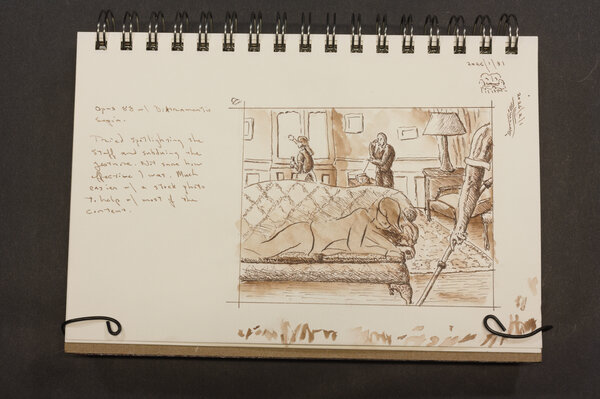 Opus 88 w/ D. Atramentis
Sepia.
Tried spotlighting the
staff and subduing the
gesture. Not sure how
effective I was. Much
easier w/ a stock photo
to help w/ most of the
content.
2026/1/31